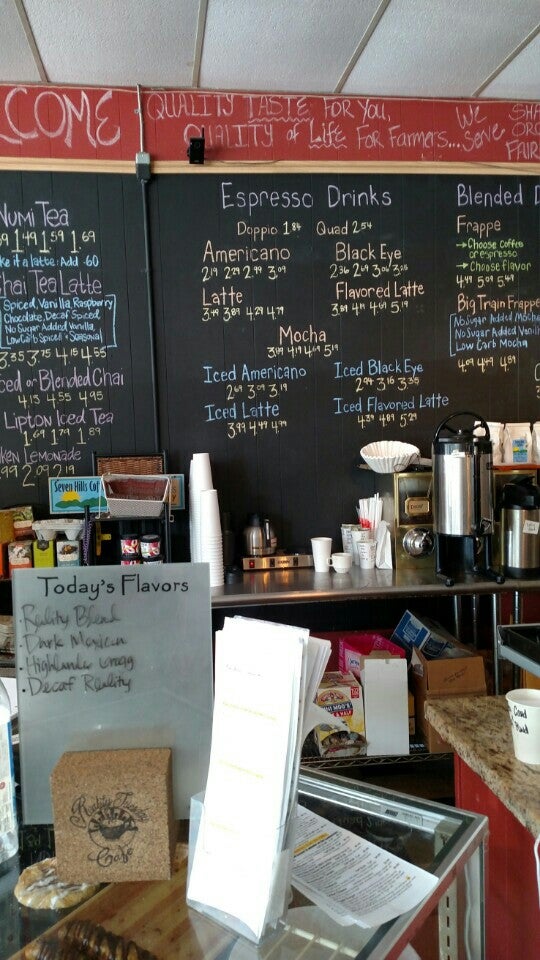 COME
QUALITY TASTE FOR YOU,
QUALITY of Life For Farmers... We
Serve
Numi Tea
1.49 1.59 1.69
ke it a latte: Add .60
hai Tea Latte
Spiced, Vanilla, Raspberry
Chocolate, Decaf Spiced,
No Sugar Added Vanilla,
Low Carb Spiced + Seasonal
3.35 3.75 4.15 4.55
ced or Blended Chai
4.15 4.55 4.95
Lipton Iced Tea
1.69 1.79 1.89
ken Lemonade
1.99 2.09 2.19
Espresso Drinks
Doppio 1.84 Quad 2.54
Americano
2.19 2.29 2.99 3.09
Black Eye
2.36 2.69 3.06 3.35
Latte
3.49 3.89 4.29 4.79
Flavored Latte
3.89 4.19 4.69 5.19
Mocha
3.89 4.19 4.69 5.19
Iced Americano
2.69 3.09 3.19
Iced Black Eye
2.94 3.16 3.35
Iced Latte
3.99 4.49 4.99
Iced Flavored Latte
4.39 4.89 5.29
Blended D
Frappe
→ Choose Coffee
or espresso
→ Choose flavor
4.49 5.09 5.49
Big Train Frappe
No Sugar Added Mocha
No Sugar Added Vanilla
Low Carb Mocha
4.09 4.49 4.89
Seven Hills Cof
Today's Flavors
Reality Blend
Dark Mexican
Highlander Grogg
Decaf Reality
Cafe